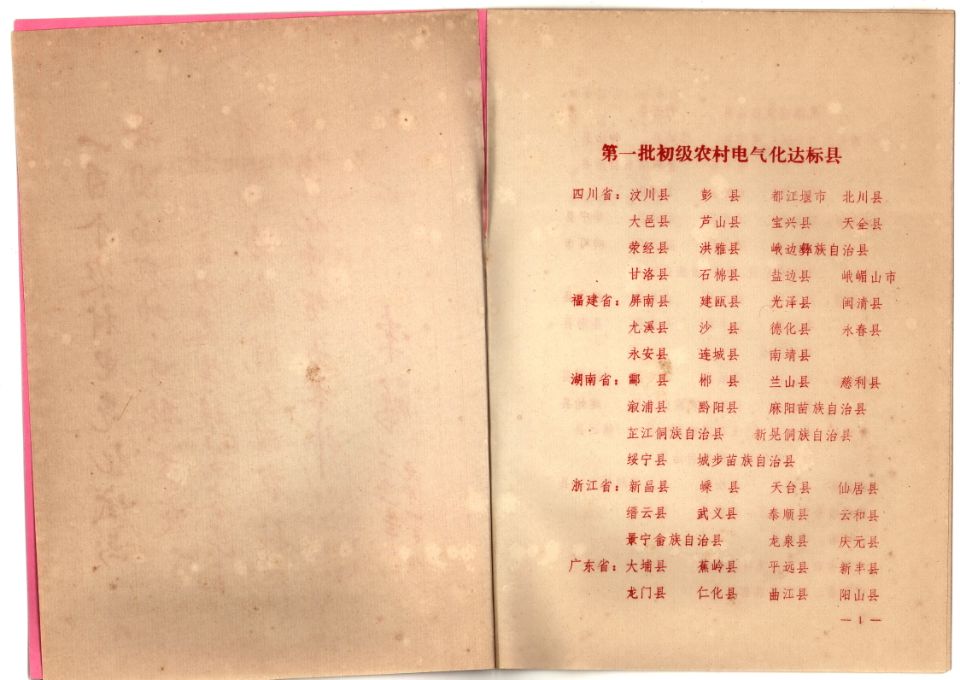 第一批初级农村电气化达标县
四川省：汶川县 彭 县 都江堰市 北川县
大邑县 芦山县 宝兴县 天全县
荥经县 洪雅县 峨边彝族自治县
甘洛县 石棉县 盐边县 峨嵋山市
福建省：屏南县 建瓯县 光泽县 闽清县
尤溪县 沙 县 德化县 永春县
永安县 连城县 南靖县
湖南省：酃 县 郴 县 兰山县 慈利县
溆浦县 黔阳县 麻阳苗族自治县
芷江侗族自治县 新晃侗族自治县
绥宁县 城步苗族自治县
浙江省：新昌县 嵊 县 天台县 仙居县
缙云县 武义县 泰顺县 云和县
景宁畲族自治县 龙泉县 庆元县
广东省：大埔县 蕉岭县 平远县 新丰县
龙门县 仁化县 曲江县 阳山县
— 1 —